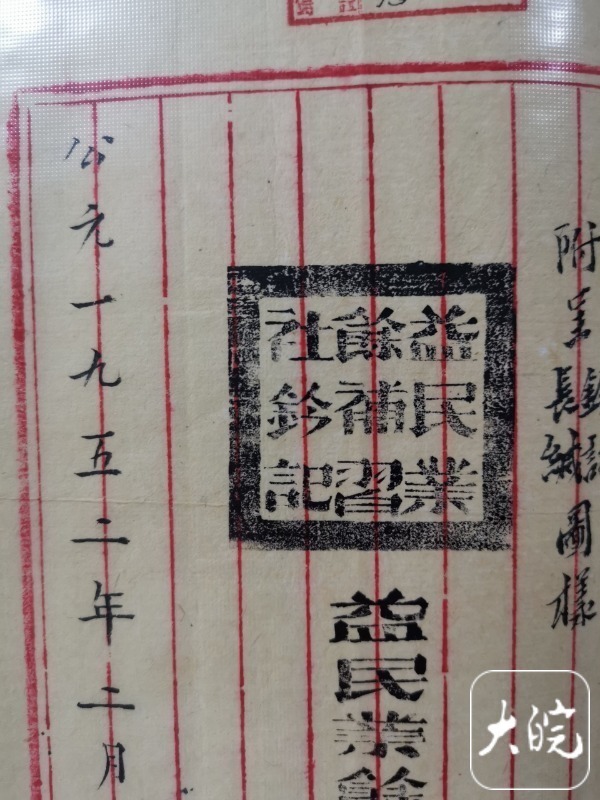 附呈
圖樣
益民業
餘補習
社鈐記
益民業餘
公元一九五二年二月
大皖